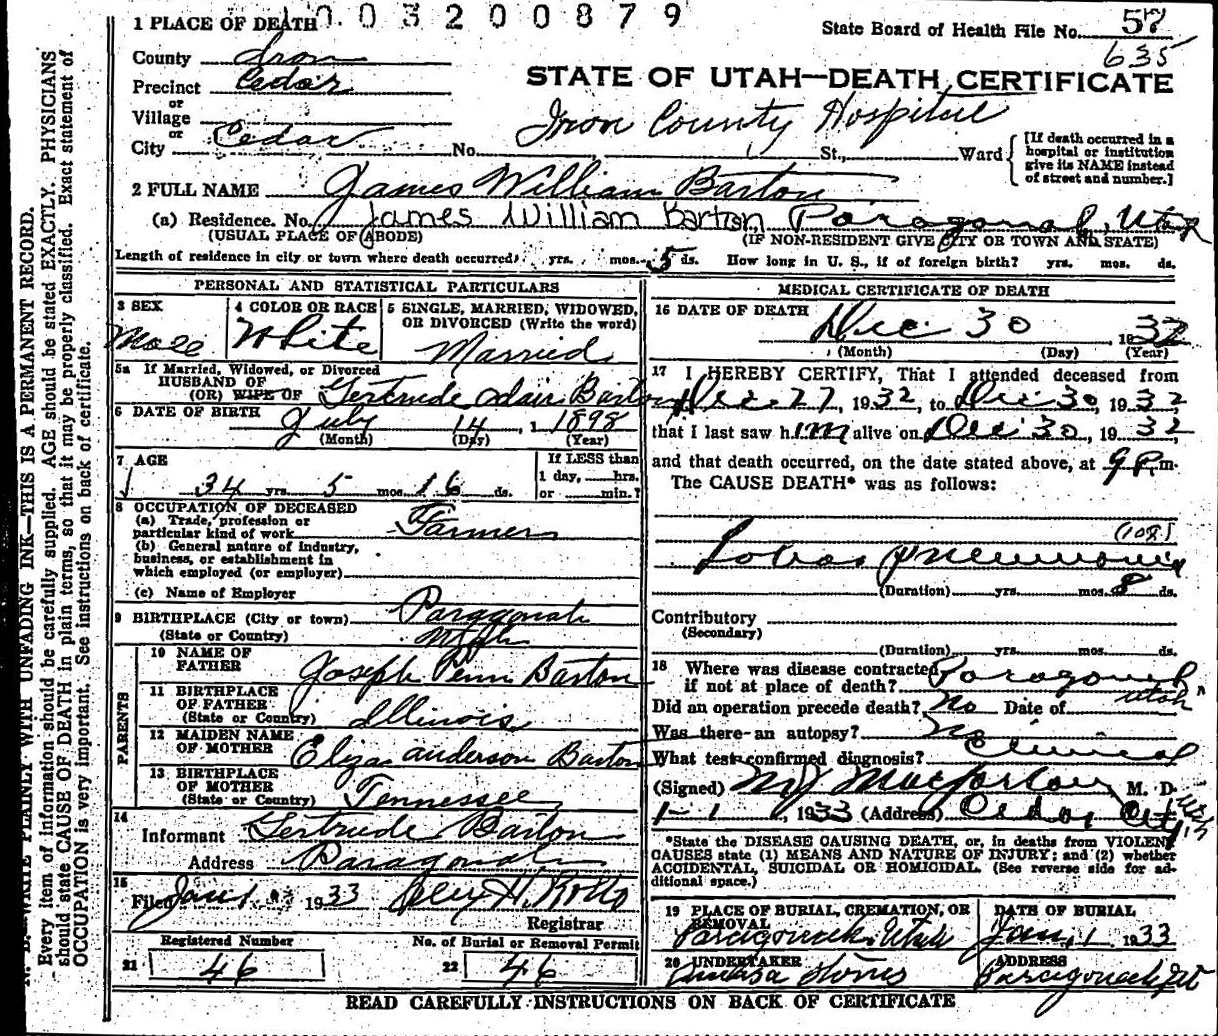 1 PLACE OF DEATH 0.03200879
State Board of Health File No. 57
635
County Iron
Precinct Cedar
STATE OF UTAH—DEATH CERTIFICATE
or
Village
or
City Cedar No. Iron County Hospital St., Ward
[If death occurred in a
hospital or institution
give its NAME instead
of street and number.]
2 FULL NAME James William Barton
(a) Residence. No. James William Barton, Paragonah, Utah
(USUAL PLACE OF ABODE) (IF NON-RESIDENT GIVE CITY OR TOWN AND STATE)
Length of residence in city or town where death occurred yrs. mos. 5 ds. How long in U. S., if of foreign birth? yrs. mos. ds.
PERSONAL AND STATISTICAL PARTICULARS
3 SEX 4 COLOR OR RACE 5 SINGLE, MARRIED, WIDOWED,
OR DIVORCED (Write the word)
Male White Married
5a If Married, Widowed, or Divorced
HUSBAND OF
(OR) WIFE OF Gertrude Adair Barton
6 DATE OF BIRTH July 14, 1898
(Month) (Day) (Year)
7 AGE If LESS than
1 day, hrs.
34 yrs. 5 mos. 16 ds. or min.?
8 OCCUPATION OF DECEASED
(a) Trade, profession or
particular kind of work Farmer
(b) General nature of industry,
business, or establishment in
which employed (or employer)
(c) Name of Employer
9 BIRTHPLACE (City or town) Paragonah
(State or Country) Utah
PARENTS
10 NAME OF
FATHER Joseph Penn Barton
11 BIRTHPLACE
OF FATHER
(State or Country) Illinois
12 MAIDEN NAME
OF MOTHER Eliza Anderson Barton
13 BIRTHPLACE
OF MOTHER
(State or Country) Tennessee
14
Informant Gertrude Barton
Address Paragonah
15
Filed Jan 1 1933
Registrar
Registered Number No. of Burial or Removal Permit
21 46 22 46
MEDICAL CERTIFICATE OF DEATH
16 DATE OF DEATH Dec. 30 1932
(Month) (Day) (Year)
17 I HEREBY CERTIFY, That I attended deceased from
Dec. 27, 1932, to Dec. 30, 1932
that I last saw him alive on Dec 30, 1932,
and that death occurred, on the date stated above, at 9 P.m.
The CAUSE DEATH* was as follows:
(108)
Lobar pneumonia
(Duration) yrs. mos. 8 ds.
Contributory
(Secondary)
(Duration) yrs. mos. ds.
18 Where was disease contracted
if not at place of death? Paragonah
Utah
Did an operation precede death? No Date of
Was there an autopsy? No
What test confirmed diagnosis? Clinical
(Signed) M J Macfarlane, M. D.
1-1, 1933 (Address) Cedar City, Utah
*State the DISEASE CAUSING DEATH, or, in deaths from VIOLENT
CAUSES state (1) MEANS AND NATURE OF INJURY; and (2) whether
ACCIDENTAL, SUICIDAL OR HOMICIDAL. (See reverse side for ad-
ditional space.)
19 PLACE OF BURIAL, CREMATION, OR DATE OF BURIAL
REMOVAL
Paragonah, Utah Jan. 1 1933
20 UNDERTAKER ADDRESS
Paragonah Ut
READ CAREFULLY INSTRUCTIONS ON BACK OF CERTIFICATE
N. B.—WRITE PLAINLY WITH UNFADING INK—THIS IS A PERMANENT RECORD.
Every item of information should be carefully supplied. AGE should be stated EXACTLY. PHYSICIANS
should state CAUSE OF DEATH in plain terms, so that it may be properly classified. Exact statement of
OCCUPATION is very important. See instructions on back of certificate.